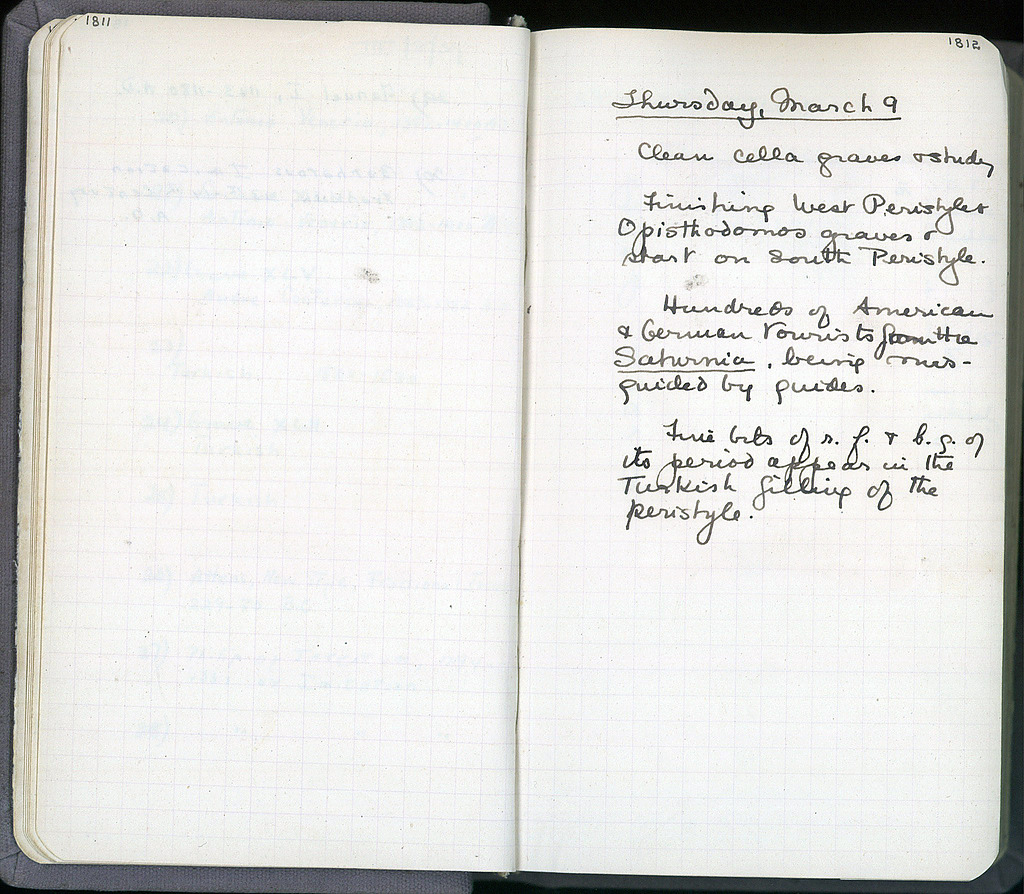 1811
1812
Thursday, March 9
Clean cella graves & study
Finishing West Peristyle &
Opisthodomos graves &
start on South Peristyle.
Hundreds of American
& German Tourists from the
Saturnia, being mis-
guided by guides.
Fine bits of r. f. & b. g. of
its period appear in the
Turkish filling of the
peristyle.